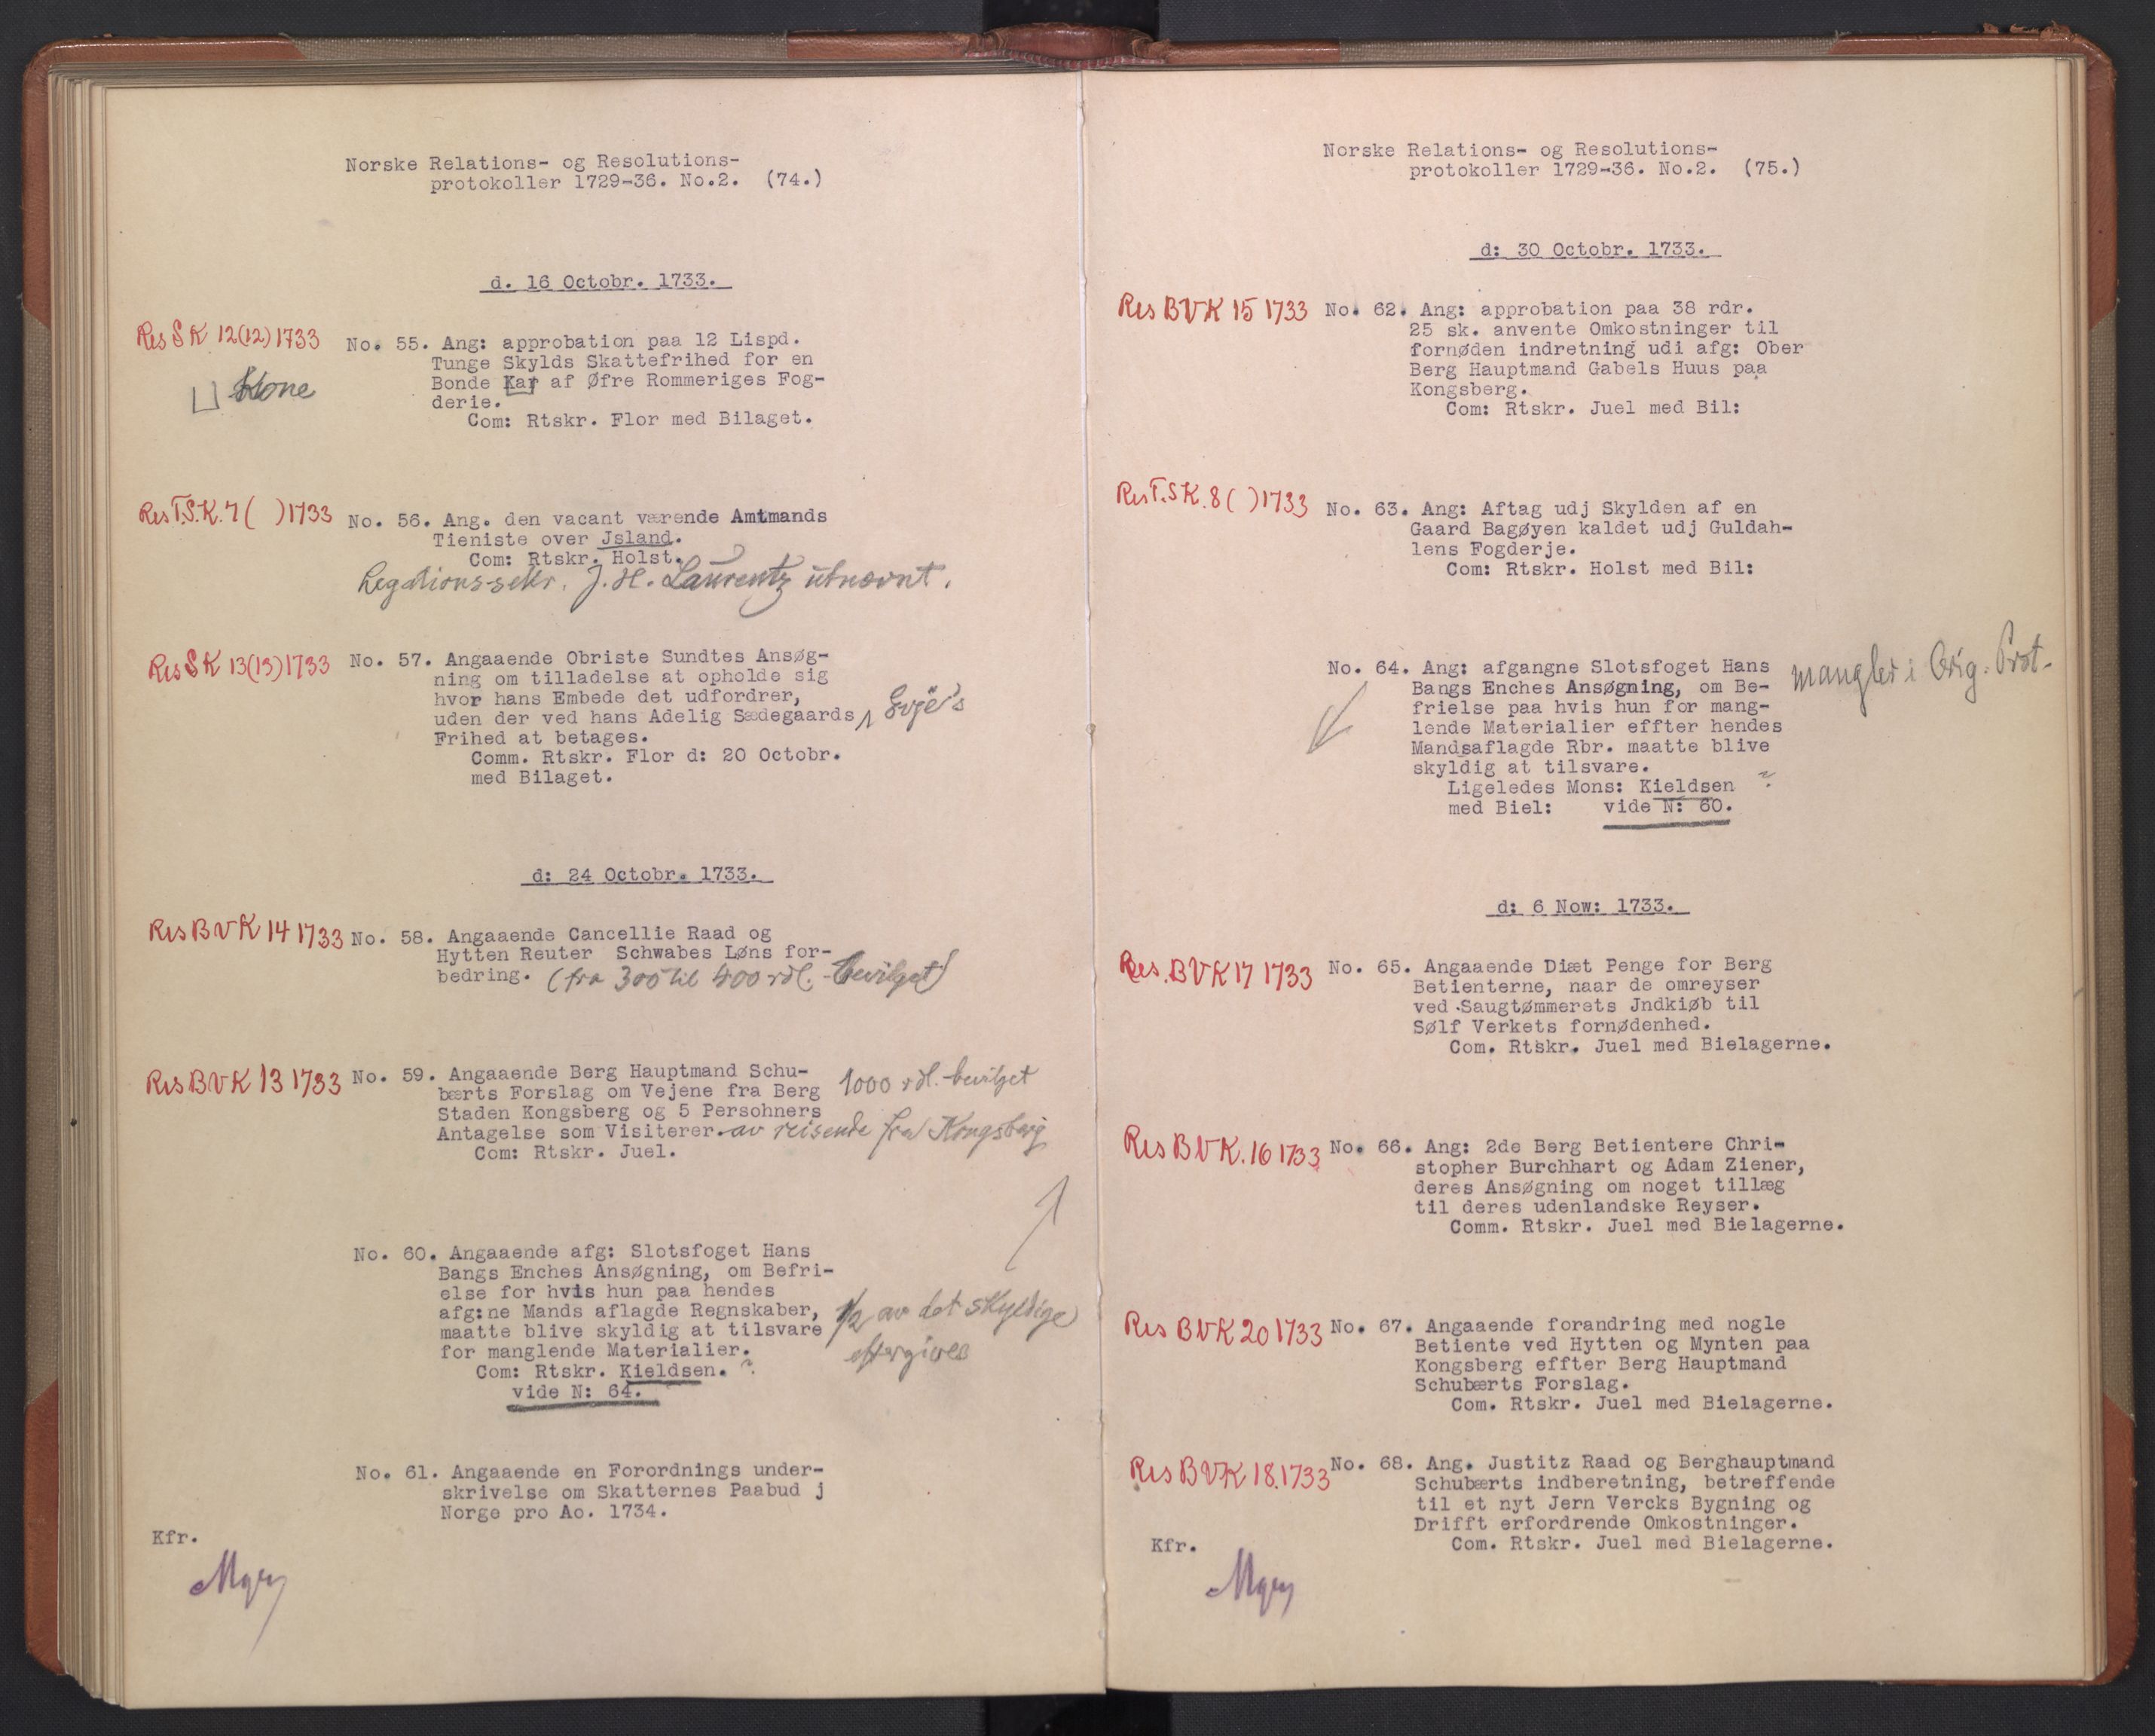 Norske Relations- og Resolutions-
protokoller 1729-36. No.2. (74.)
d. 16 Octobr. 1733.
Res S K 12(12) 1733
No. 55. Ang: approbation paa 12 Lispd.
Tunge Skylds Skattefrihed for en
Bonde Kar af Øfre Rommeriges Fog-
derie.
Kone
Com: Rtskr. Flor med Bilaget.
Res T.S.K. 7 ( ) 1733
No. 56. Ang. den vacant værende Amtmands
Tieniste over Jsland.
Com: Rtskr. Holst.
Legations-sekr. J. H. Laurentz utnevnt.
Res S K 13(13) 1733
No. 57. Angaaende Obriste Sundtes Ansøg-
ning om tilladelse at opholde sig
hvor hans Embede det udfordrer,
uden der ved hans Adelig Sædegaards
Frihed at betages.
Comm. Rtskr. Flor d: 20 Octobr.
med Bilaget.
d: 24 Octobr. 1733.
Res B V K 14 1733
No. 58. Angaaende Cancellie Raad og
Hytten Reuter Schwabes Løns for-
bedring. (fra 300 til 400 rdl. - bevilget)
Res B V K 13 1733
No. 59. Angaaende Berg Hauptmand Schu-
bærts Forslag om Vejene fra Berg
1000 rdl. bevilget
Staden Kongsberg og 5 Persohners
Antagelse som Visiterer av reisende fra Kongsberg
Com: Rtskr. Juel.
No. 60. Angaaende afg: Slotsfoget Hans
Bangs Enches Ansøgning, om Befri-
else for hvis hun paa hendes
afg:ne Mands aflagde Regnskaber,
maatte blive skyldig at tilsvare
for manglende Materialier.
1/2 av det skyldige
eftergives
Com: Rtskr. Kieldsen. ?
vide N: 64.
No. 61. Angaaende en Forordnings under-
skrivelse om Skatternes Paabud j
Norge pro Ao. 1734.
Kfr.
Norske Relations- og Resolutions-
protokoller 1729-36. No.2. (75.)
d: 30 Octobr. 1733.
Res B V K 15 1733
No. 62. Ang: approbation paa 38 rdr.
25 sk. anvente Omkostninger til
fornøden indretning udi afg: Ober
Berg Hauptmand Gabels Huus paa
Kongsberg.
Com: Rtskr. Juel med Bil:
Res T.S K. 8 ( ) 1733
No. 63. Ang: Aftag udj Skylden af en
Gaard Bagøyen kaldet udj Guldah-
lens Fogderje.
Com: Rtskr. Holst med Bil:
No. 64. Ang: afgangne Slotsfoget Hans
Bangs Enches Ansøgning, om Be-
frielse paa hvis hun for mang-
lende Materialier effter hendes
Mandsaflagde Rbr. maatte blive
skyldig at tilsvare.
mangler i Orig. Prot.
Ligeledes Mons: Kieldsen ?
med Biel: vide N: 60.
d: 6 Now: 1733.
Res. B V K 17 1733
No. 65. Angaaende Diæt Penge for Berg
Betienterne, naar de omreyser
ved Saugtømmerets Jndkiøb til
Sølf Verkets fornødenhed.
Com. Rtskr. Juel med Bielagerne.
Res B V K. 16 1733
No. 66. Ang: 2de Berg Betientere Chri-
stopher Burchhart og Adam Ziener,
deres Ansøgning om noget tillæg
til deres udenlandske Reyser.
Comm. Rtskr. Juel med Bielagerne.
Res B V K 20 1733
No. 67. Angaaende forandring med nogle
Betiente ved Hytten og Mynten paa
Kongsberg effter Berg Hauptmand
Schubærts Forslag.
Com. Rtskr. Juel med Bielagerne.
Res B V K 18. 1733
No. 68. Ang. Justitz Raad og Berghauptmand
Schubærts indberetning, betreffende
til et nyt Jern Vercks Bygning og
Drifft erfordrende Omkostninger.
Com. Rtskr. Juel med Bielagerne.
Kfr.